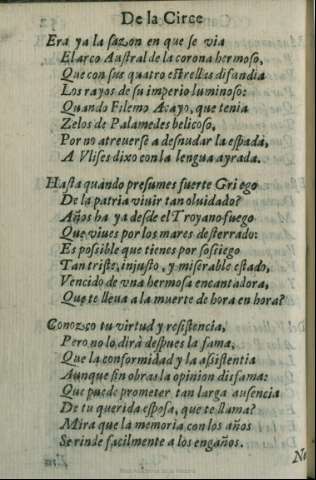 De la Circe
Era ya la sazon en que se via
El arco Austral de la corona hermoso,
Que con sus quatro estrellas difundia
Los rayos de su imperio luminoso:
Quando Filemo Acayo, que tenia
Zelos de Palamedes belicoso,
Por no atreuerse a desnudar la espada,
A Vlises dixo con la lengua ayrada.
Hasta quando presumes fuerte Griego
De la patria viuir tan oluidado?
Años ha ya desde el Troyano fuego
Que viues por los mares desterrado:
Es possible que tienes por sossiego
Tan triste, injusto, y miserable estado,
Vencido de vna hermosa encantadora,
Que te lleua a la muerte de hora en hora?
Conozco tu virtud y resistencia,
Pero no lo dirà despues la fama,
Que la conformidad y la assistentia
Aunque sin obras la opinion disfama:
Que puede prometer tan larga ausencia
De tu querida esposa, que te llama?
Mira que la memoria con los años
Se rinde facilmente a los engaños.
No